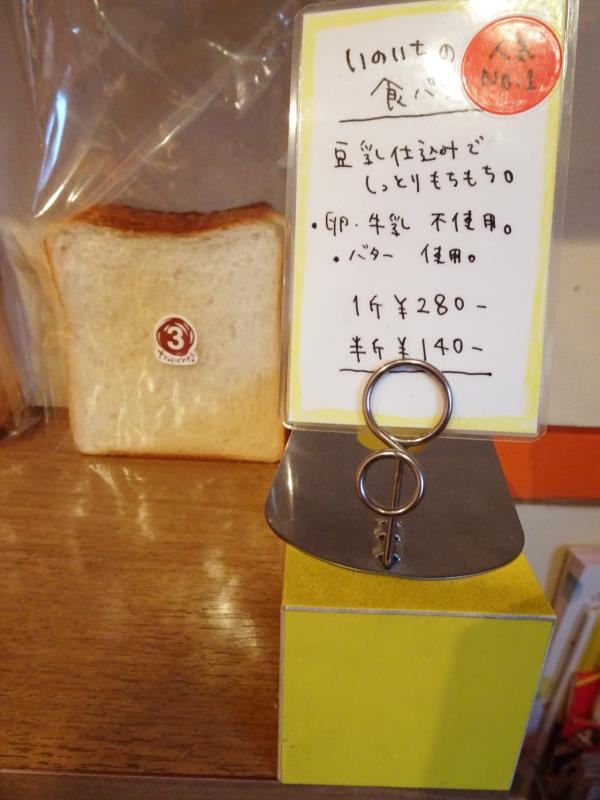 いのいちの
食パ
人気
No.1
豆乳仕込みで
しっとりもちもち。
・卵・牛乳 不使用。
・バター 使用。
1斤 ¥280-
半斤 ¥140-
3